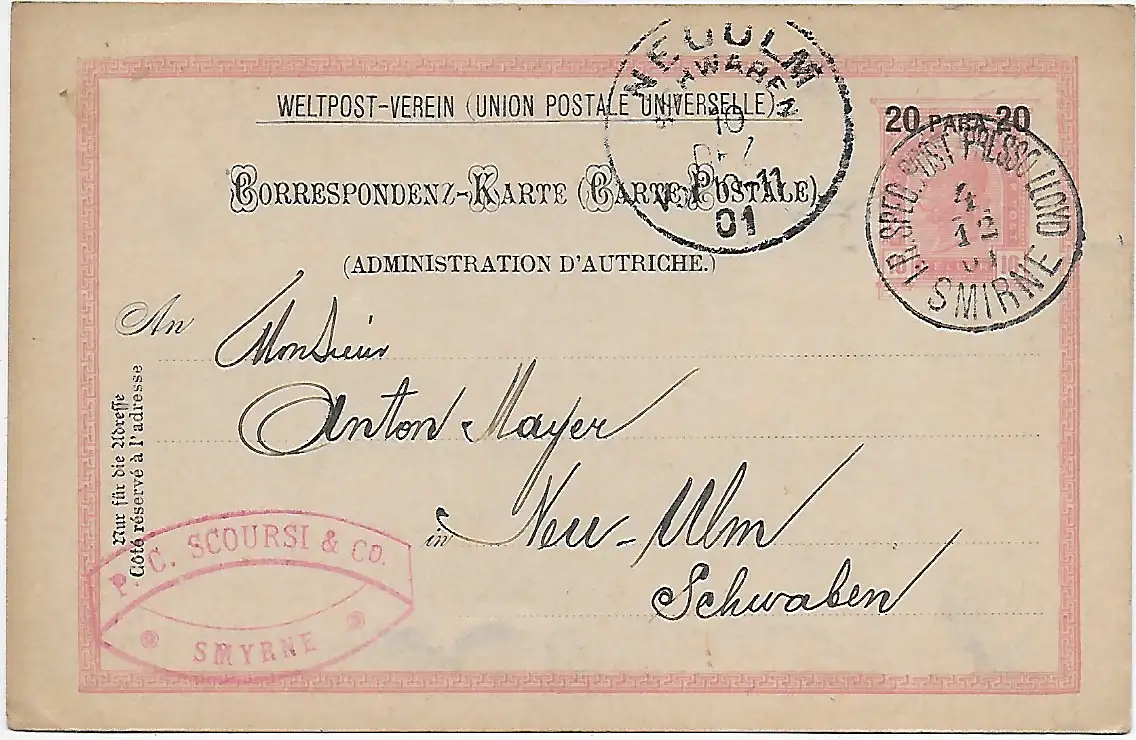 WELTPOST-VEREIN (UNION POSTALE UNIVERSELLE).
CORRESPONDENZ-KARTE (CARTE POSTALE)
(ADMINISTRATION D'AUTRICHE.)
NEUULM
SCHWABEN
10
DEZ
V. 10-11
01
20 PARA 20
I.R. SPED. POST. PRESSO LLOYD
4
12
01
SMIRNE
10 10
An
Monsieur
Anton Mayer
in Neu-Ulm
Schwaben
Nur für die Adresse
Côté réservé à l'adresse
P. C. SCOURSI & CO.
SMYRNE